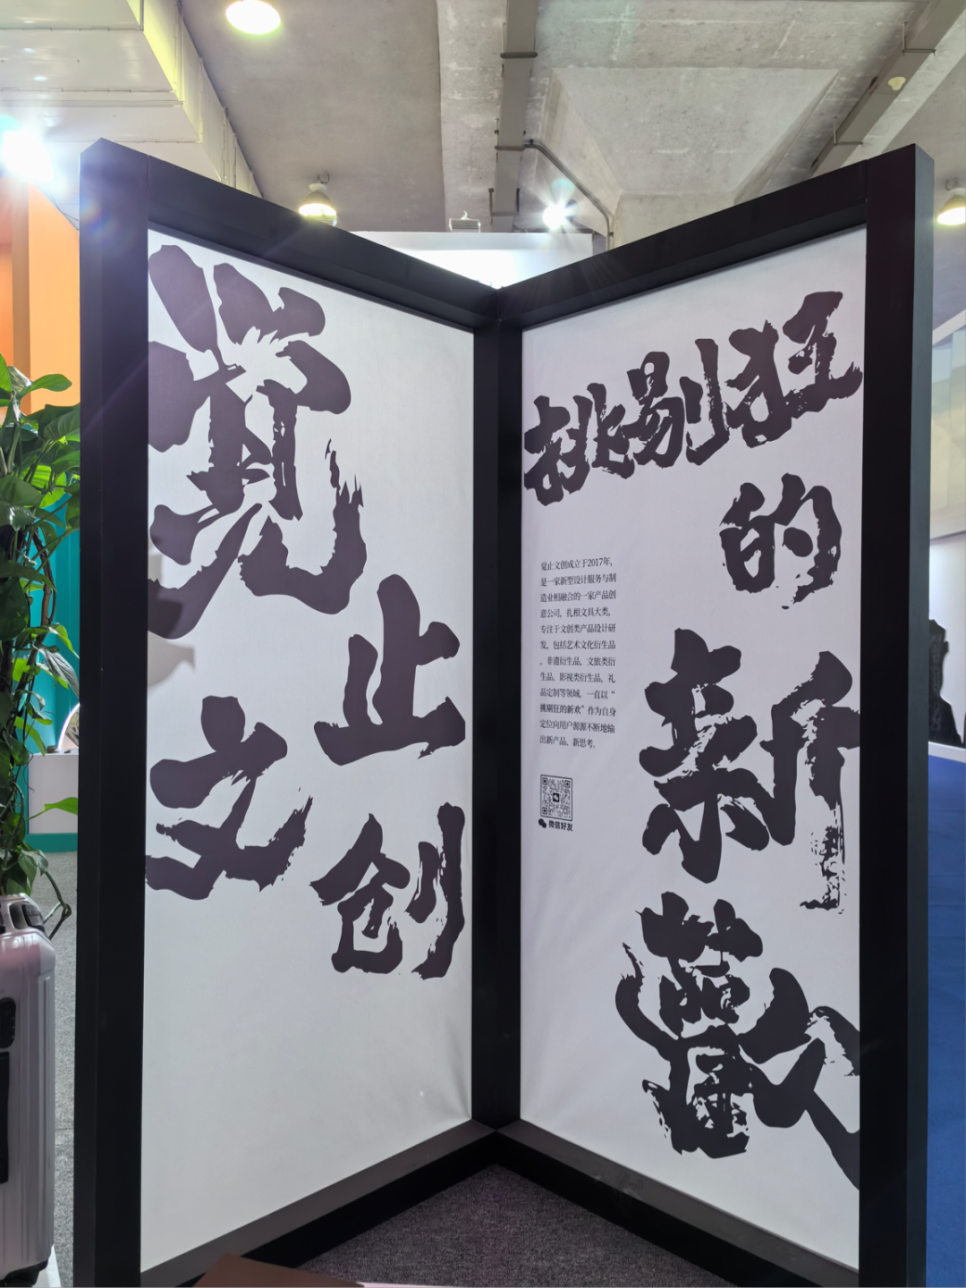 觉
止
文
创
挑剔狂
的
新
歡
觉止文创成立于2017年，
是一家新型设计服务与制
造业相融合的一家产品创
意公司，扎根文具大类，
专注于文创类产品设计研
发，包括艺术文化衍生品
，非遗衍生品，文旅类衍
生品，影视类衍生品，礼
品定制等领域，一直以“
挑剔狂的新欢”作为自身
定位向用户源源不断地输
出新产品、新思考。
微信好友